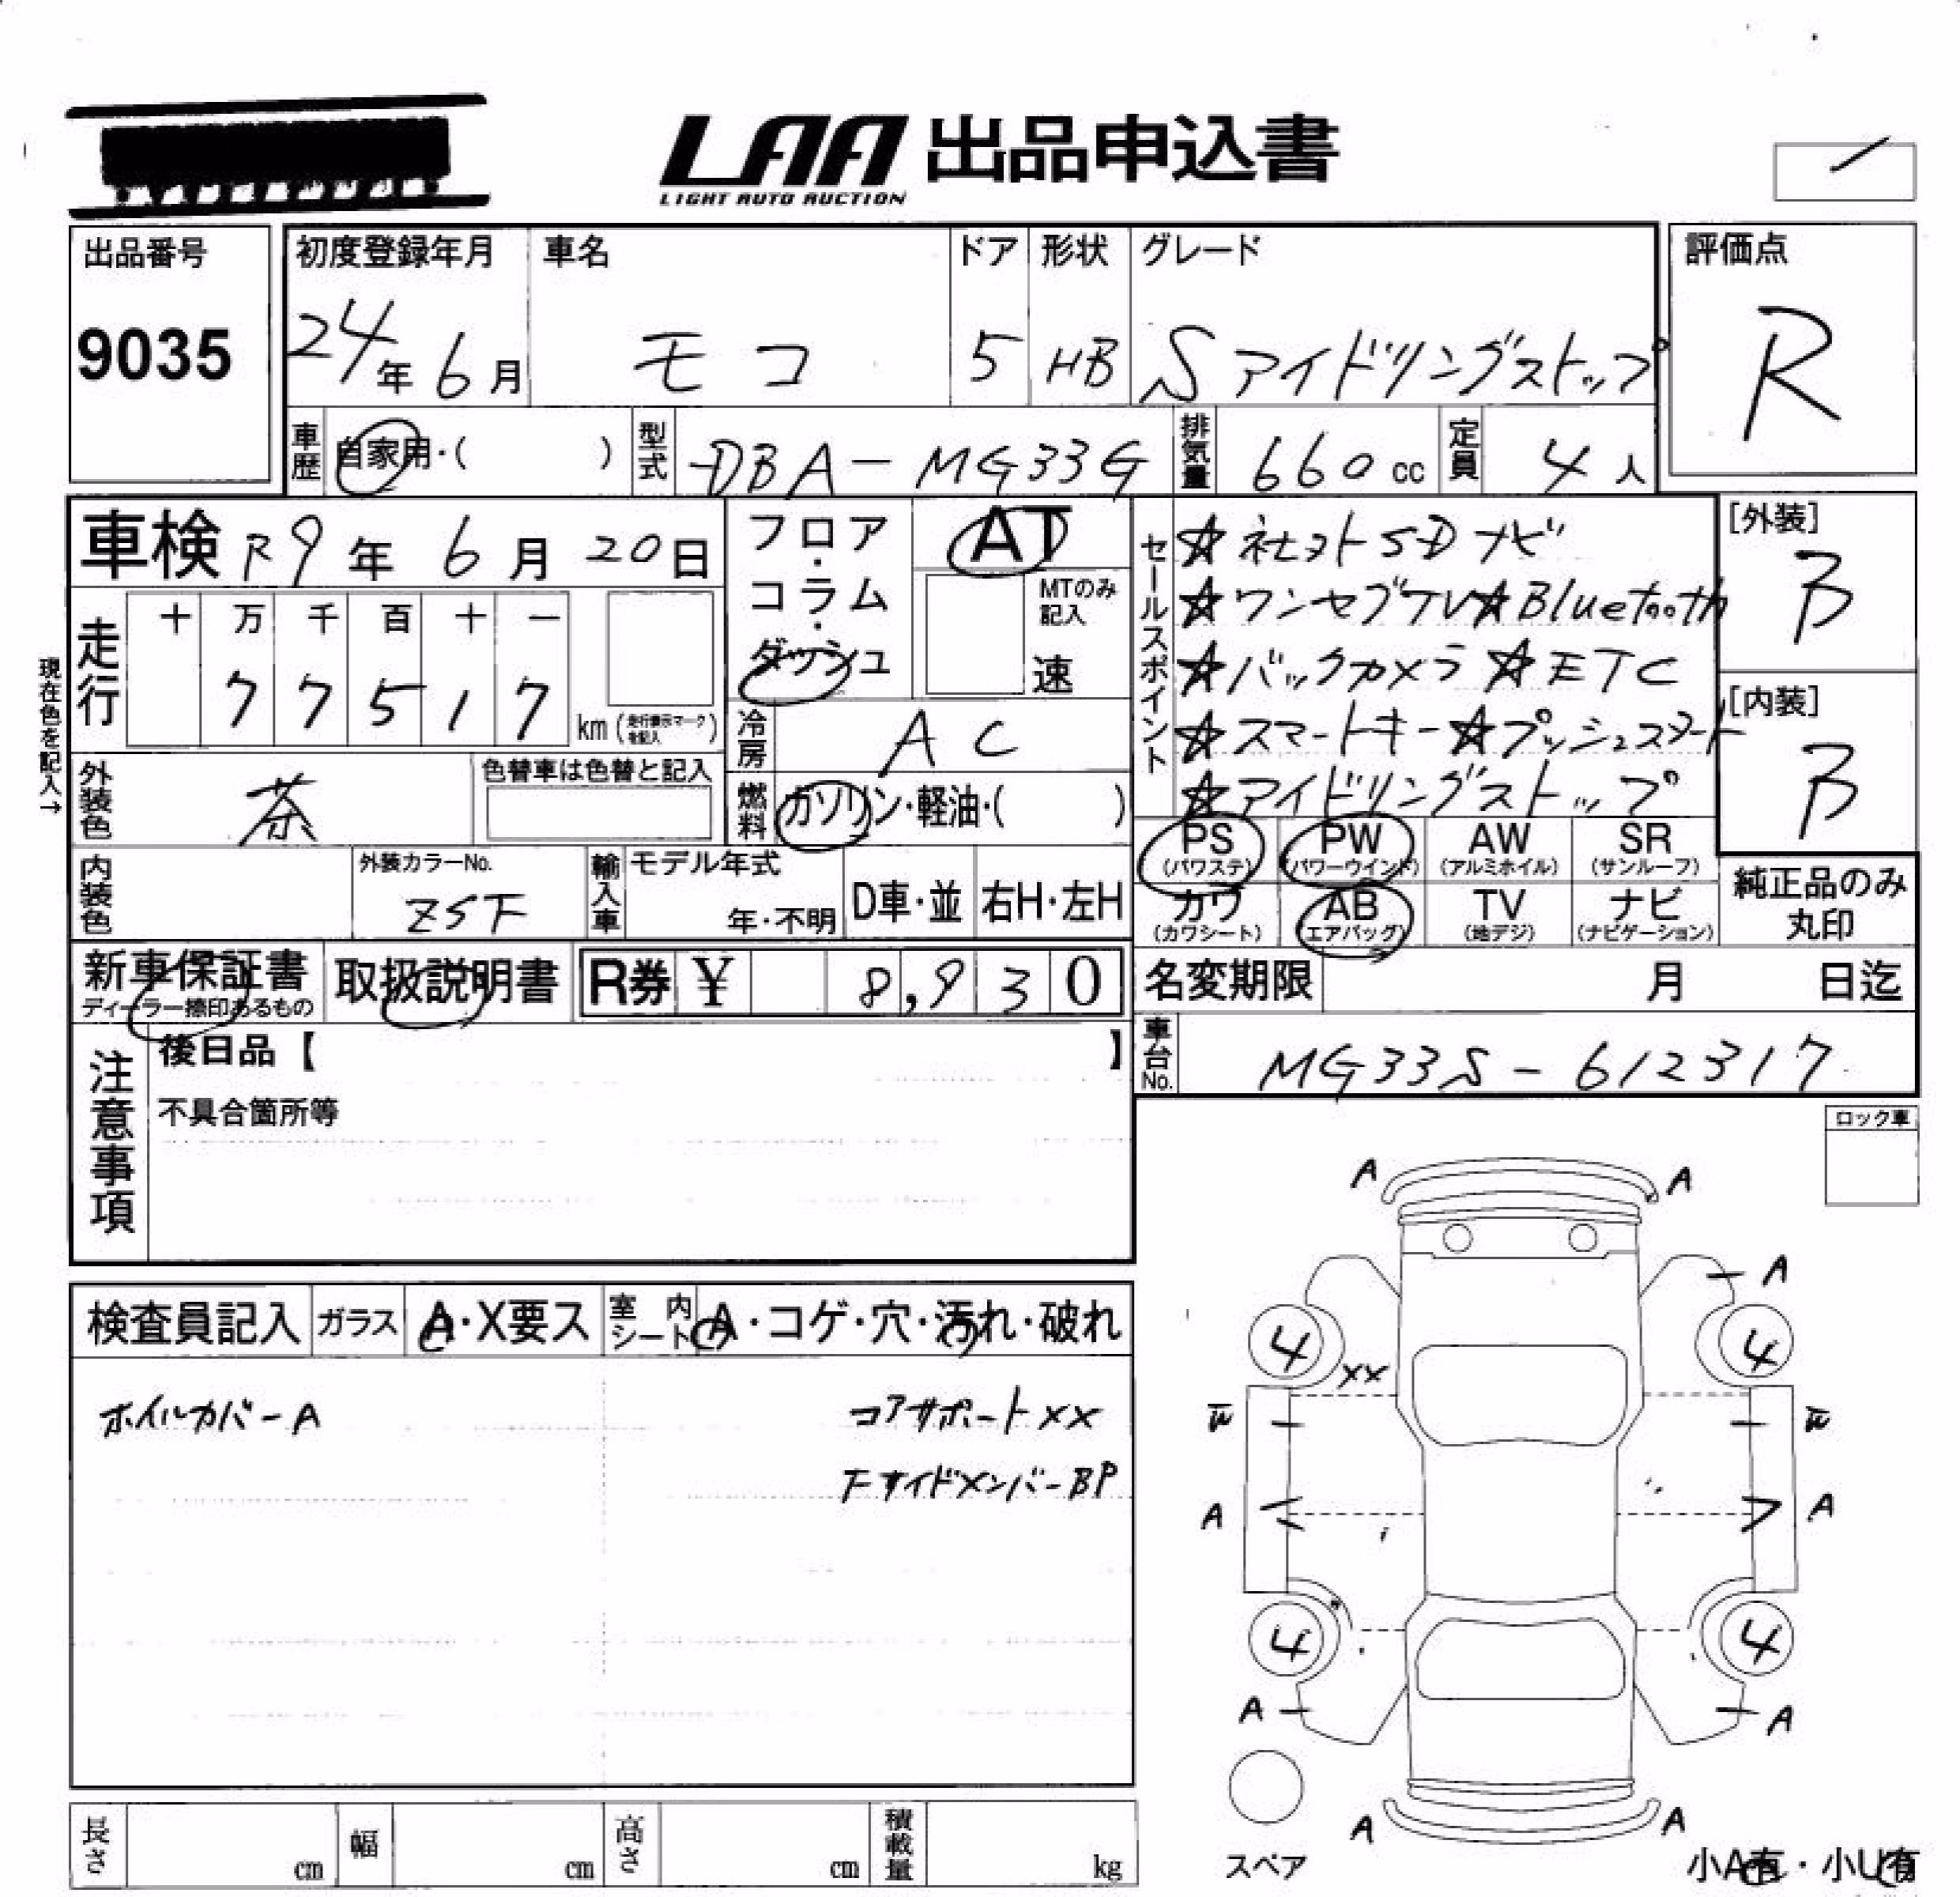 LAA 出品申込書
LIGHT AUTO AUCTION
出品番号
9035
初度登録年月
24年 6月
車名
モコ
ドア
5
形状
HB
グレード
S アイドリングストップ
評価点
R
車歴
自家用・( )
型式
DBA-MG33G
排気量
660 cc
定員
4 人
車検 R9年 6月 20日
フロア・コラム・ダッシュ
AT
MTのみ記入
速
セールスポイント
☆社外SDナビ
☆ワンセグTV☆Bluetooth
☆バックカメラ ☆ETC
☆スマートキー☆プッシュスタート
☆アイドリングストップ
[外装]
B
[内装]
B
現在色を記入→
走行
十 万 千 百 十 一
7 7 5 1 7
km (走行表示マークを記入)
冷房
AC
外装色
茶
色替車は色替と記入
燃料
ガソリン・軽油・( )
PS (パワステ)
PW (パワーウインド)
AW (アルミホイル)
SR (サンルーフ)
カワ (カワシート)
AB (エアバッグ)
TV (地デジ)
ナビ (ナビゲーション)
純正品のみ丸印
内装色
外装カラーNo.
ZSF
輸入車
モデル年式
年・不明
D車・並
右H・左H
新車保証書
ディーラー捺印あるもの
取扱説明書
R券 ¥ 8,930
名変期限 月 日迄
車台No.
MG33S-612317
注意事項
後日品【 】
不具合箇所等
ロック車
検査員記入
ガラス
A・X要ス
室内シート
A・コゲ・穴・汚れ・破れ
ホイルカバーA
コアサポートXX
FサイドメンバーBP
A A
A
4 4
XX
W W
A A
4 4
A A
A A
スペア
小A有・小U有
長さ cm
幅 cm
高さ cm
積載量 kg